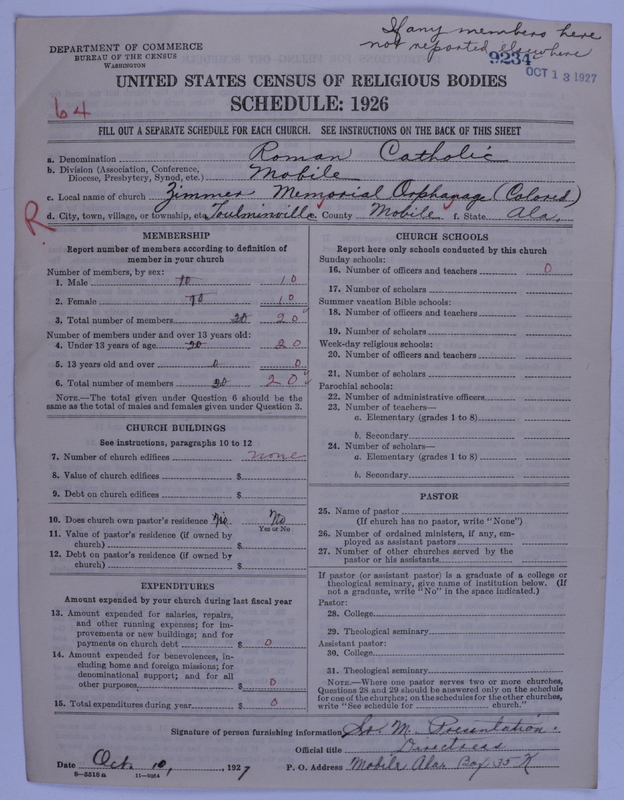 If any members here
not reported elsewhere
DEPARTMENT OF COMMERCE
BUREAU OF THE CENSUS
WASHINGTON
9234
OCT 13 1927
UNITED STATES CENSUS OF RELIGIOUS BODIES
64
SCHEDULE: 1926
FILL OUT A SEPARATE SCHEDULE FOR EACH CHURCH. SEE INSTRUCTIONS ON THE BACK OF THIS SHEET
a. Denomination Roman Catholic
b. Division (Association, Conference,
Diocese, Presbytery, Synod, etc.) Mobile
c. Local name of church Zimmer Memorial Orphanage (Colored)
R
d. City, town, village, or township, etc. Toulminville e. County Mobile f. State Ala.
MEMBERSHIP
Report number of members according to definition of
member in your church
Number of members, by sex:
1. Male 10 10
2. Female 10 10
3. Total number of members 20 20
Number of members under and over 13 years old:
4. Under 13 years of age 20 20
5. 13 years old and over 0 0
6. Total number of members 20 20
NOTE.—The total given under Question 6 should be
same as the total of males and females given under Question 3.
CHURCH BUILDINGS
See instructions, paragraphs 10 to 12
7. Number of church edifices none
8. Value of church edifices $
9. Debt on church edifices $
10. Does church own pastor's residence No No
Yes or No
11. Value of pastor's residence (if owned by
church) $
12. Debt on pastor's residence (if owned by
church) $
EXPENDITURES
Amount expended by your church during last fiscal year
13. Amount expended for salaries, repairs,
and other running expenses; for im-
provements or new buildings; and for
payments on church debt $ 0
14. Amount expended for benevolences, in-
cluding home and foreign missions; for
denominational support; and for all
other purposes $ 0
15. Total expenditures during year $ 0
CHURCH SCHOOLS
Report here only schools conducted by this church
Sunday schools:
16. Number of officers and teachers 0
17. Number of scholars
Summer vacation Bible schools:
18. Number of officers and teachers
19. Number of scholars
Week-day religious schools:
20. Number of officers and teachers
21. Number of scholars
Parochial schools:
22. Number of administrative officers
23. Number of teachers—
a. Elementary (grades 1 to 8)
b. Secondary
24. Number of scholars—
a. Elementary (grades 1 to 8)
b. Secondary
PASTOR
25. Name of pastor
(If church has no pastor, write "None")
26. Number of ordained ministers, if any, em-
ployed as assistant pastors
27. Number of other churches served by the
pastor or his assistants
If pastor (or assistant pastor) is a graduate of a college or
theological seminary, give name of institution below. (If
not a graduate, write "No" in the space indicated.)
Pastor:
28. College
29. Theological seminary
Assistant pastor:
30. College
31. Theological seminary
NOTE.—Where one pastor serves two or more churches,
Questions 28 and 29 should be answered only on the schedule
for one of the churches; on the schedules for the other churches,
write "See schedule for church."
Signature of person furnishing information Sr. M. Presentation.
Official title Directress
Date Oct. 10, 1927 P. O. Address Mobile Ala. Box 35 K
8—5516a 11—9264